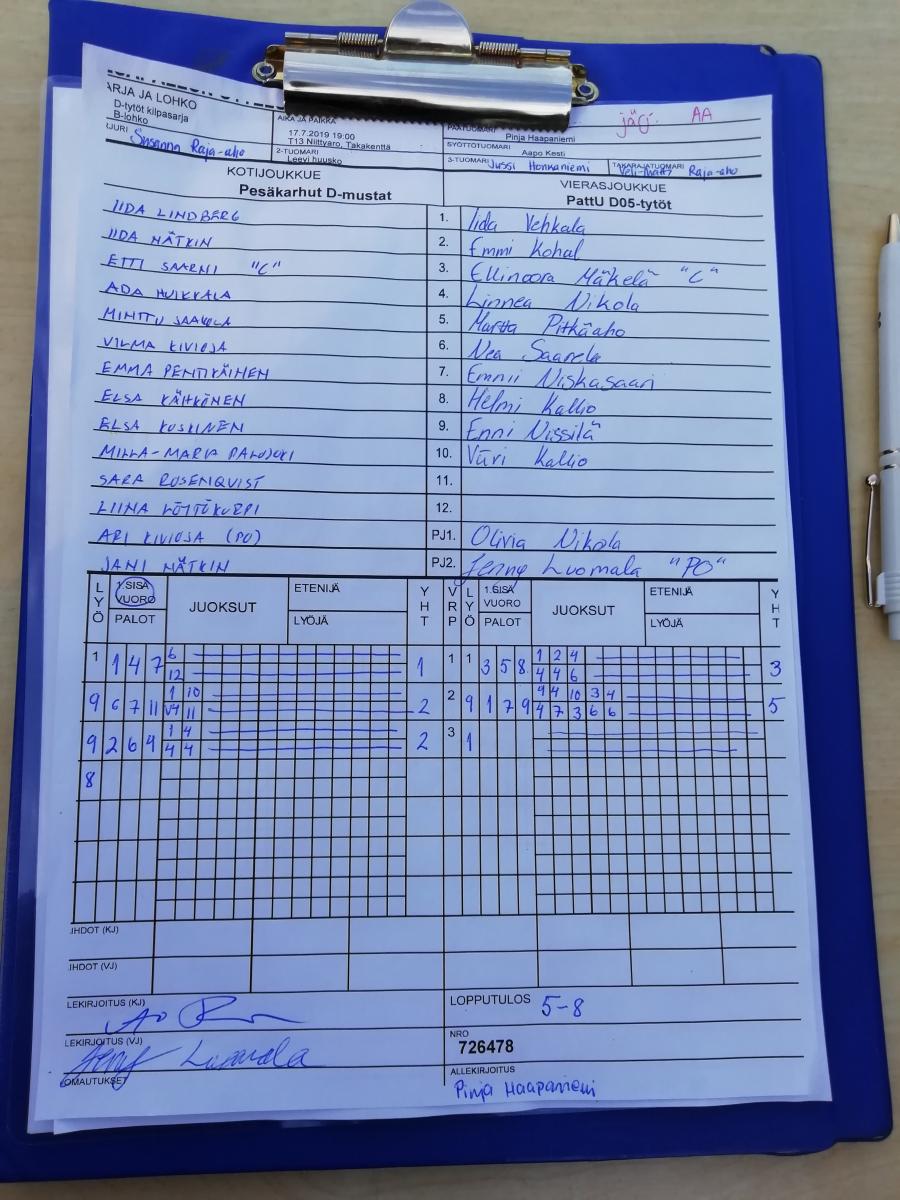 ARJA JA LOHKO
D-tytöt kilpasarja
B-lohko
Susanna Raja-aho
AIKA JA PAIKKA
17.7.2019 19:00
T13 Niittyaro, Takakenttä
2-TUOMARI
Leevi huusko
PÄÄTUOMARI
Pinja Haapaniemi
SYÖTTÖTUOMARI
Aapo Kesti
3-TUOMARI Jussi Honkaniemi
TAKARAJATUOMARI
Veli-Matti Raja-aho
järj. AA
KOTIJOUKKUE
Pesäkarhut D-mustat
VIERASJOUKKUE
PattU D05-tytöt
IIDA LINDBERG 1. Iida Vehkala
IIDA NÄTKIN 2. Emmi Kohal
ETTI SAARNI "C" 3. Ellinoora Mäkelä "C"
ADA HUIKKALA 4. Linnea Nikola
MINTTU JAAKOLA 5. Martta Pitkäaho
VILMA KIVIOJA 6. Nea Saarela
EMMA PENTIKÄINEN 7. Emnii Niskasaari
ELSA KÄHKÖNEN 8. Helmi Kallio
ELSA KOSKINEN 9. Enni Nissilä
MILLA-MARIA PALOJOKI 10. Kallio
SARA ROSENQVIST 11.
LIINA 12.
ARI KIVIOJA (PO) PJ1. Olivia Nikola
JANI NÄTKIN PJ2. Jenny Luomala "PO"
LYÖ 1.SISÄ VUORO PALOT JUOKSUT ETENIJÄ LYÖJÄ YHT VRP LYÖ 1.SISÄ VUORO PALOT JUOKSUT ETENIJÄ LYÖJÄ YHT
1 1 4 7 6 1 1 1 3 5 8 1 2 4 3
12 4 4 6
9 6 7 11 1 10 2 2 9 1 7 9 9 4 10 3 4 5
11 4 7 3 6 6
9 2 6 9 1 4 2 3 1
4 4
8
IHDOT (KJ)
IHDOT (VJ)
LEKIRJOITUS (KJ)
LOPPUTULOS 5-8
LEKIRJOITUS (VJ)
Jenny Luomala
NRO
726478
OMAUTUKSET
ALLEKIRJOITUS
Pinja Haapaniemi